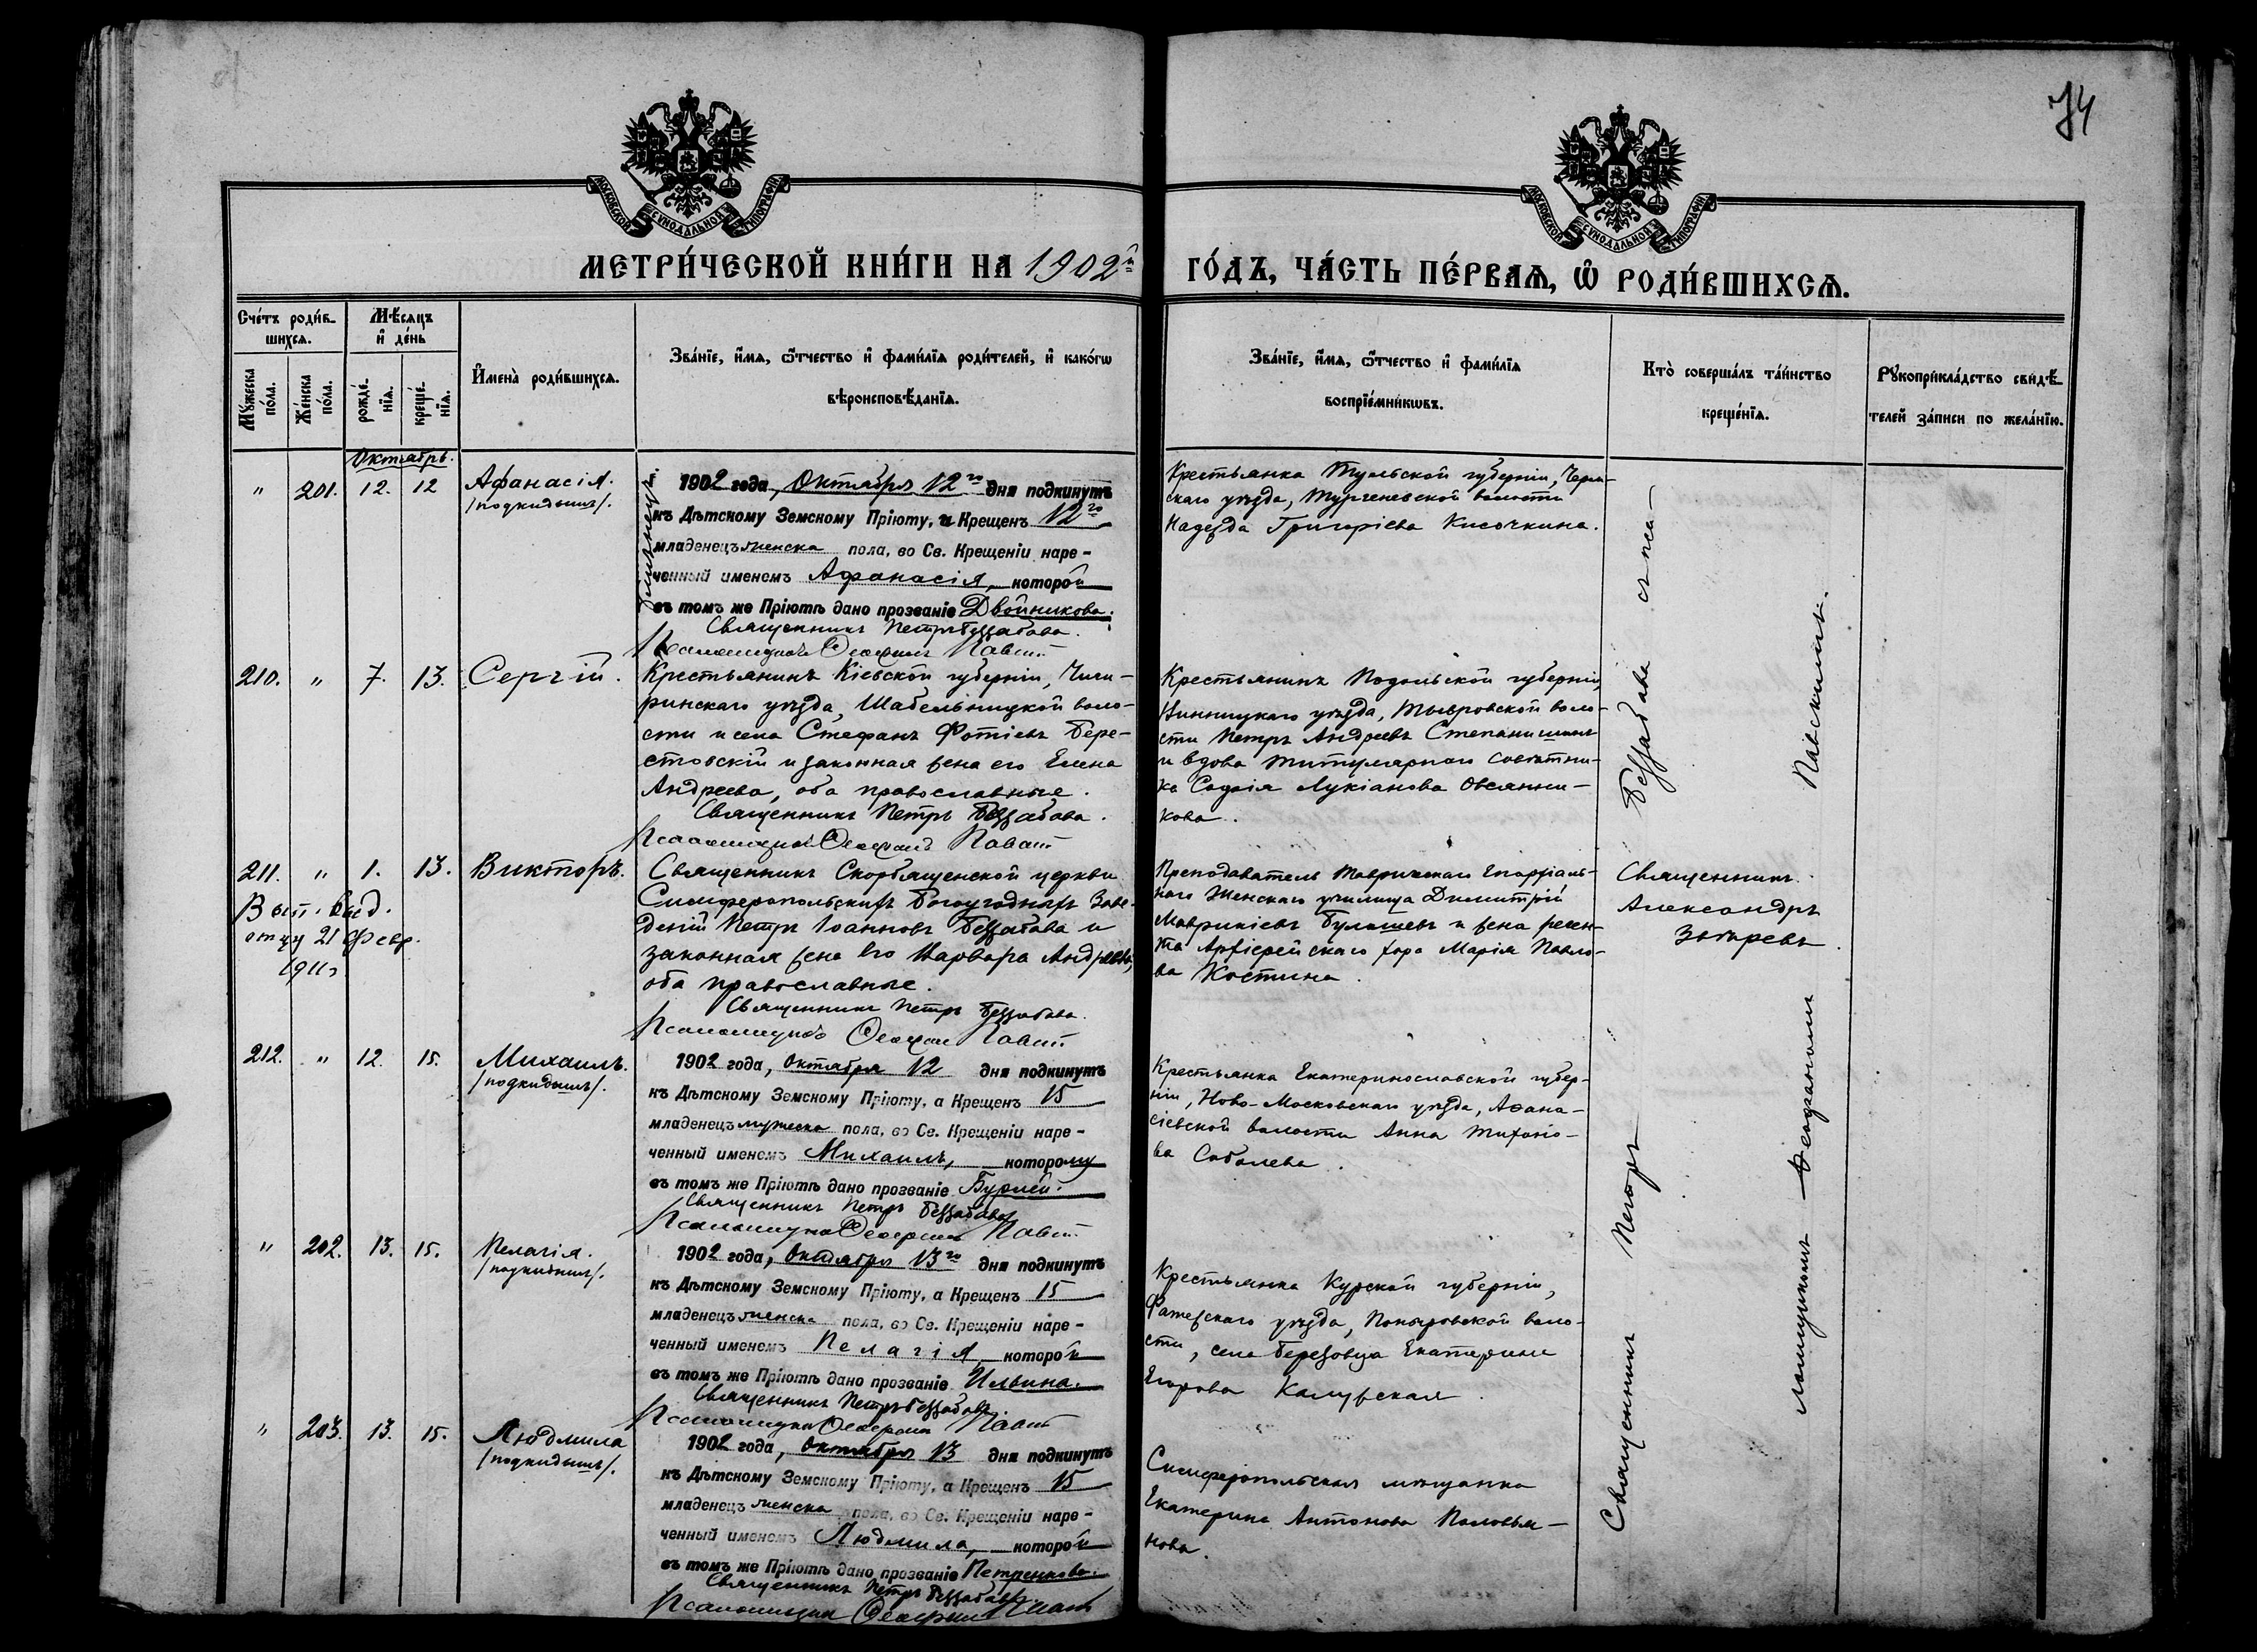 74
МОСКОВСКОЙ СѴНОДАЛЬНОЙ ТИПОГРАФІИ
МОСКОВСКОЙ СѴНОДАЛЬНОЙ ТИПОГРАФІИ
МЕТРИ́ЧЕСКОЙ КНИ́ГИ НА 1902й ГО́ДЪ, ЧА́СТЬ ПЕ́РВАЯ, Ѡ҆ РОДИ́ВШИХСЯ.
Сче́тъ роди́в-
шихся.
Мѣ́сяцъ
и҆ де́нь
Мꙋ́жеска
по́ла.
Же́нска
по́ла.
рожде́-
нїя.
креще́-
нїя.
И҆мена̀ роди́вшихся.
Зва́нїе, и҆́мя, ѻ҆́тчество и҆ фами́лїя роди́телей, и҆ како́гѡ
вѣроисповѣ́данїя.
Зва́нїе, и҆́мя, ѻ҆́тчество и҆ фами́лїя
воспрїе́мникѡвъ.
Кто̀ соверша́лъ та́инство
креще́нїя.
Рꙋкоприкла́дство свидѣ́-
телей за́писи по жела́нїю.
Октябрь.
" 201. 12. 12 Афанасія.
/подкидышъ/.
1902 года, Октября 12го дня подкинутъ
къ Дѣтскому Земскому Пріюту, и Крещенъ 12го
младенецъ женска пола, во Св. Крещеніи наре-
ченный именемъ Афанасія, которой
въ томъ же Пріютѣ дано прозваніе Двойникова.
Священникъ Петръ Беззабава.
Псаломщикъ Ѳеофанъ
Крестьянка Тульской губерніи, Черн-
скаго уѣзда, Тургеневской волости
Надежда Григоріева Кисочкина.
210. " 7. 13. Сергій.
Крестьянинъ Кіевской губерніи, Чиги-
ринскаго уѣзда, Шабельницкой воло-
сти и села Стефанъ Фотіевъ Бере-
стовскій и законная жена его Елена
Андреева, оба православные.
Священникъ Петръ Беззабава.
Псаломщикъ Ѳеофанъ
Крестьянинъ Подольской губерніи,
Винницкаго уѣзда, Тывровской воло-
сти Петръ Андреевъ Степанишинъ
и вдова титулярнаго совѣтни-
ка Софія Лукіанова Овсянни-
кова.
211. " 1. 13. Викторъ.
Вып. выд.
отцу 21 Февр.
1911 г.
Священникъ Скорбященской церкви
Симферопольскихъ богоугодныхъ Заве-
деній Петръ Іоанновъ Беззабава и
законная жена его Варвара Андреева,
оба православные.
Священникъ Петръ Беззабава.
Псаломщикъ Ѳеофанъ
Преподаватель Таврическаго Епархіаль-
наго Женскаго училища Димитрій
Маврикіевъ Булашевъ и жена реген-
та Архіерейскаго хора Марія Павло-
ва Костина.
Священникъ
Александръ
212. " 12. 15. Михаилъ.
/подкидышъ/.
1902 года, Октября 12 дня подкинутъ
къ Дѣтскому Земскому Пріюту, а Крещенъ 15
младенецъ мужеска пола, во Св. Крещеніи наре-
ченный именемъ Михаилъ, которому
въ томъ же Пріютѣ дано прозваніе Бурлей.
Священникъ Петръ Беззабава
Псаломщикъ Ѳеофанъ
Крестьянка Екатеринославской губер-
ніи, Ново-Московскаго уѣзда, Афана-
сіевской волости Анна Тихоно-
ва Соболева.
" 202. 13. 15. Пелагія.
/подкидышъ/.
1902 года, Октября 13го дня подкинутъ
къ Дѣтскому Земскому Пріюту, а Крещенъ 15
младенецъ женска пола, во Св. Крещеніи наре-
ченный именемъ Пелагія, которой
въ томъ же Пріютѣ дано прозваніе Ильина.
Священникъ Петръ Беззабава
Псаломщикъ Ѳеофанъ
Крестьянка Курской губерніи,
Фатежскаго уѣзда, Поныровской воло-
сти, села Березовца Екатерина
Егорова Калужская.
" 203. 13. 15. Людмила
/подкидышъ/.
1902 года, Октября 13 дня подкинутъ
къ Дѣтскому Земскому Пріюту, а Крещенъ 15
младенецъ женска пола, во Св. Крещеніи наре-
ченный именемъ Людмила, которой
въ томъ же Пріютѣ дано прозваніе Петренкова.
Священникъ Петръ Беззабава
Псаломщикъ Ѳеофанъ
Симферопольская мѣщанка
Екатерина Антонова Половья-
нова.
Священникъ Петръ Беззабава съ пса-
ломщикомъ Ѳеофаномъ